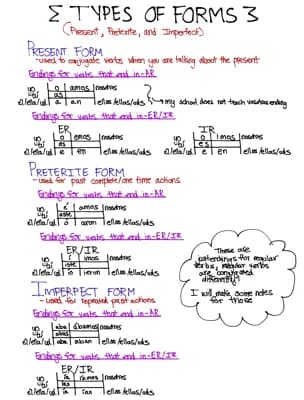 Σ TYPES OF FORMS 3
(Present, Preterite, and Imperfect)
PRESENT FORM
-used to conjugate verbs when you are talking about the present
Endings for verbs that end in-AR
yo o amos nosotros
tú as
él/ella/ud. a an ellos/ellas/uds
→ my school does not teach vosotros ending
Endings for verbs that end in-ER/IR
ER
yo o emos nosotros
tú es
él/ella/ud e en ellos/ellas/uds
IR
yo o imos nosotros
tú es
él/ella/ud e en ellos/ellas/uds
PRETERITE FORM
- used for past complete/one time actions
Endings for verbs that end in-AR
yo é amos nosotros
tú aste
él/ella/ud ó aron ellos/ellas/uds
Endings for verbs that end in-ER/IR
ER/IR
yo í imos nosotros
tú iste
él/ella/ud ió ieron ellos/ellas/uds
These are
for regular
verbs,
are conjugated
differently!
I will make some notes
for those
IMPERFECT FORM
- used for repeated past actions
Endings for verbs that end in-AR
yo aba ábamos nosotros
tú abas
él/ella/ud aba aban ellos/ellas/uds
Endings for verbs that end in-ER/IR
ER/IR
yo ía íamos nosotros
tú ías
él/ella/ud ía ían ellos/ellas/uds